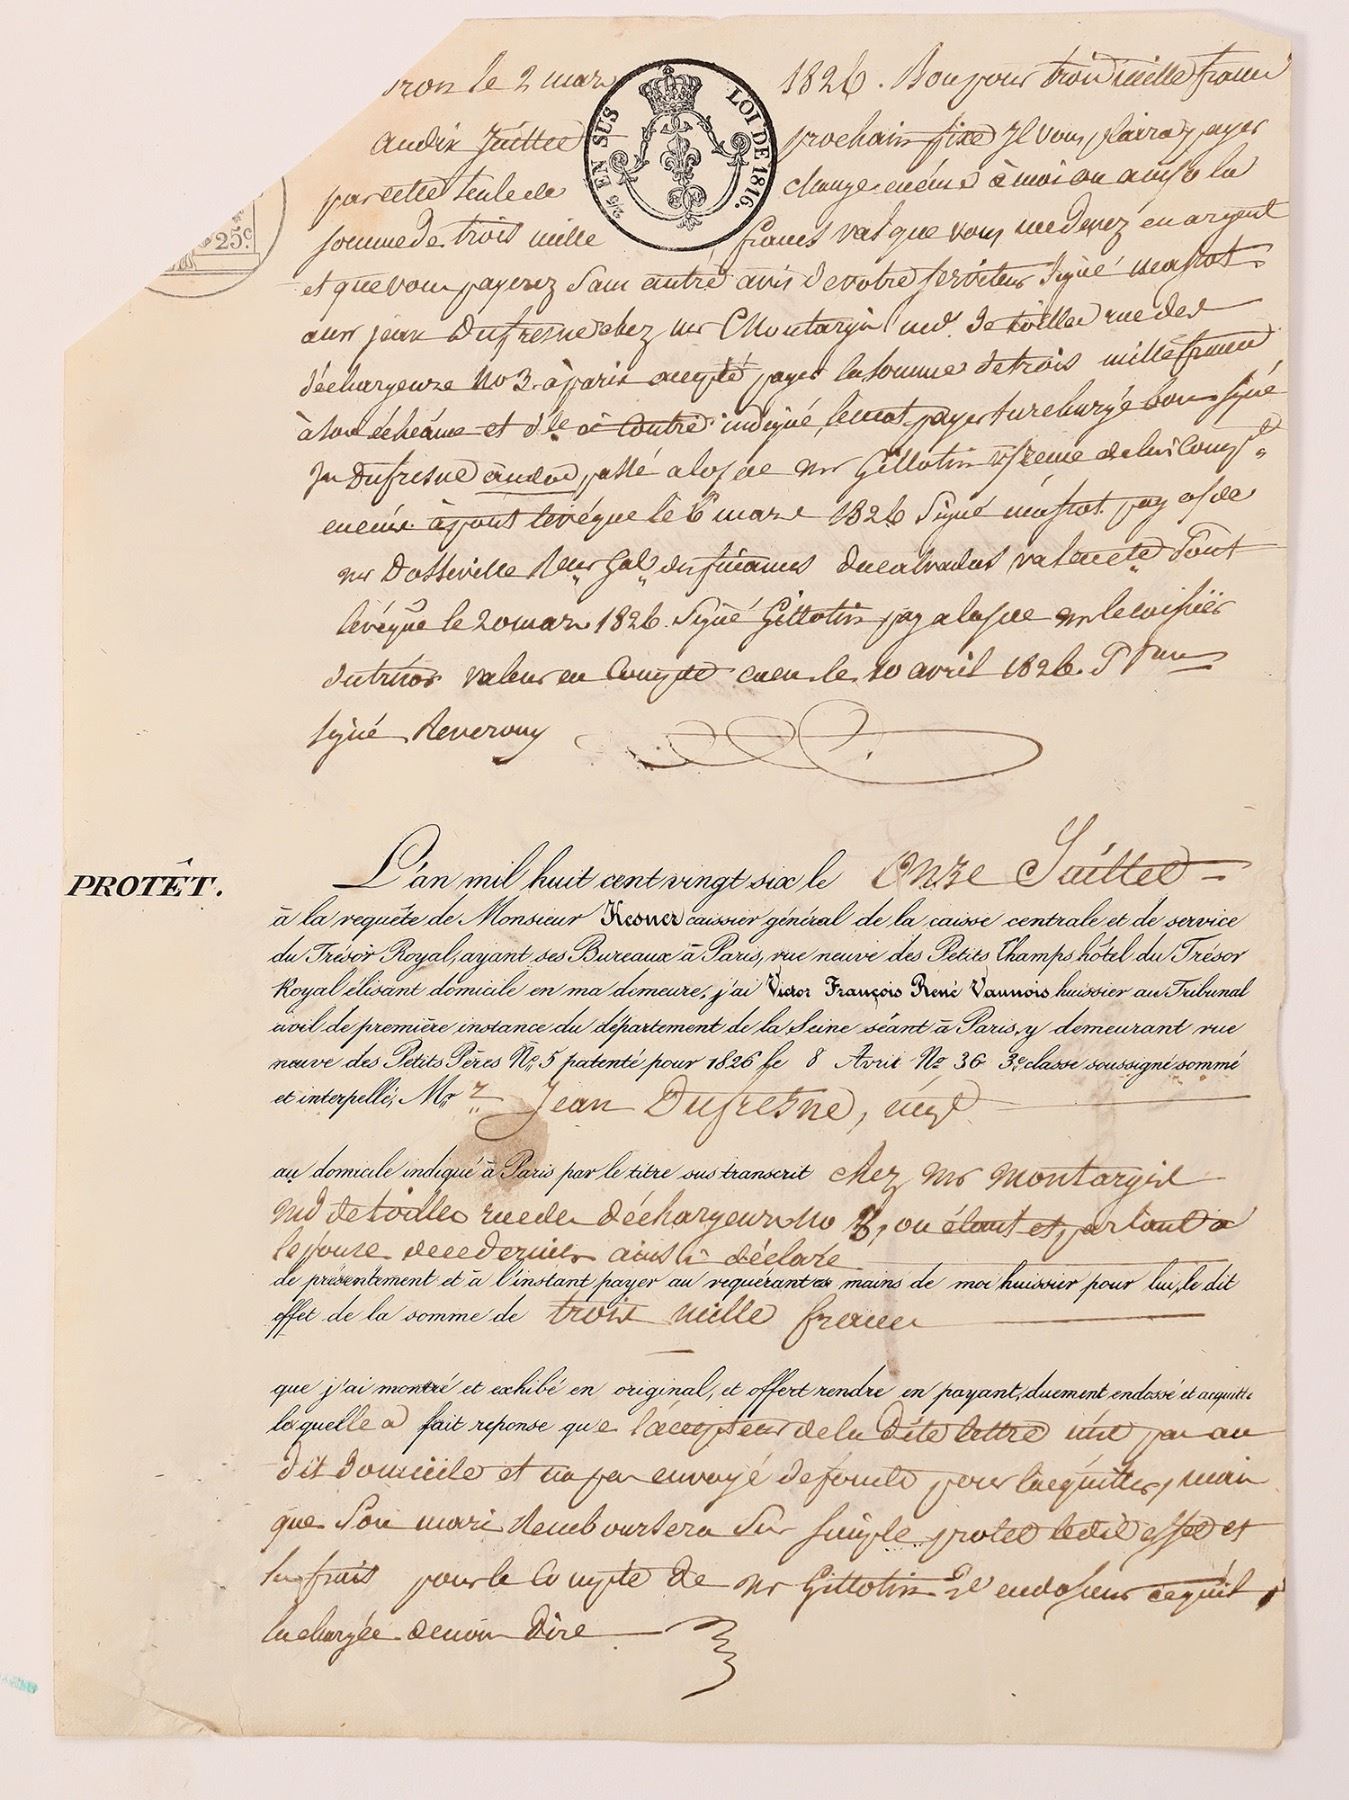 le 2 mars 1826. Bon pour trois mille francs
2/5 EN SUS LOI DE 1816.
25c
au dix Juillet prochain fixe Il vous plaira payer
par cette seule de change à moi ou a la
somme de trois mille francs val que vous me devez en argent
et que vous payerez sans autre avis de votre serviteur signé mastot
a mr jean Dufresne chez mr Montargis md de toilles rue des
déchargeurs No 3 à paris accepté payer la somme de trois mille francs
à son échéance et signé
Jn Dufresne au dos passé a lordre mr Gillotin
à pont levêque le 6 mars 1826 signé mastot pay
mr Dosseville Recr Gal des finances du calvados valeur Pont
lévêque le 20 mars 1826 signé Gillotin pay a lordre mr le caissier
du trésor valeur en Compte caen le 10 avril 1826.
signé Reverony
PROTÊT. L'an mil huit cent vingt six le Onze Juillet
à la requête de Monsieur Kesner caissier général de la caisse centrale et de service
du Trésor Royal, ayant ses Bureaux à Paris, rue neuve des Petits Champs hôtel du Trésor
Royal élisant domicile en ma demeure, j'ai Victor François René Vaunois huissier au Tribunal
civil de première instance du département de la Seine séant à Paris, y demeurant rue
neuve des Petits Pères No 5 patenté pour 1826 le 8 Avril No 36 3e classe soussigné sommé
et interpellé, Mr Jean Dufresne, négt
au domicile indiqué à Paris par le titre sus transcrit chez mr montargis
md de toilles rue des déchargeurs no 3, ou étant et parlant a
lepouse de ce dernier ainsi déclaré
de présentement et à l'instant payer au requérant es mains de moi huissier pour lui, le dit
effet de la somme de trois mille francs
que j'ai montré et exhibé en original, et offert rendre en payant, duement endossé et acquitté
laquelle a fait reponse que l'accepteur de la dite lettre n'est pas au
dit domicile et na pas envoyé de fonds pour lacquitter, mais
que Son mari Remboursera Sur simple protet ledit effet et
les frais pour le Compte de mr Gillotin endosseur ce quil
la chargée de nous Dire